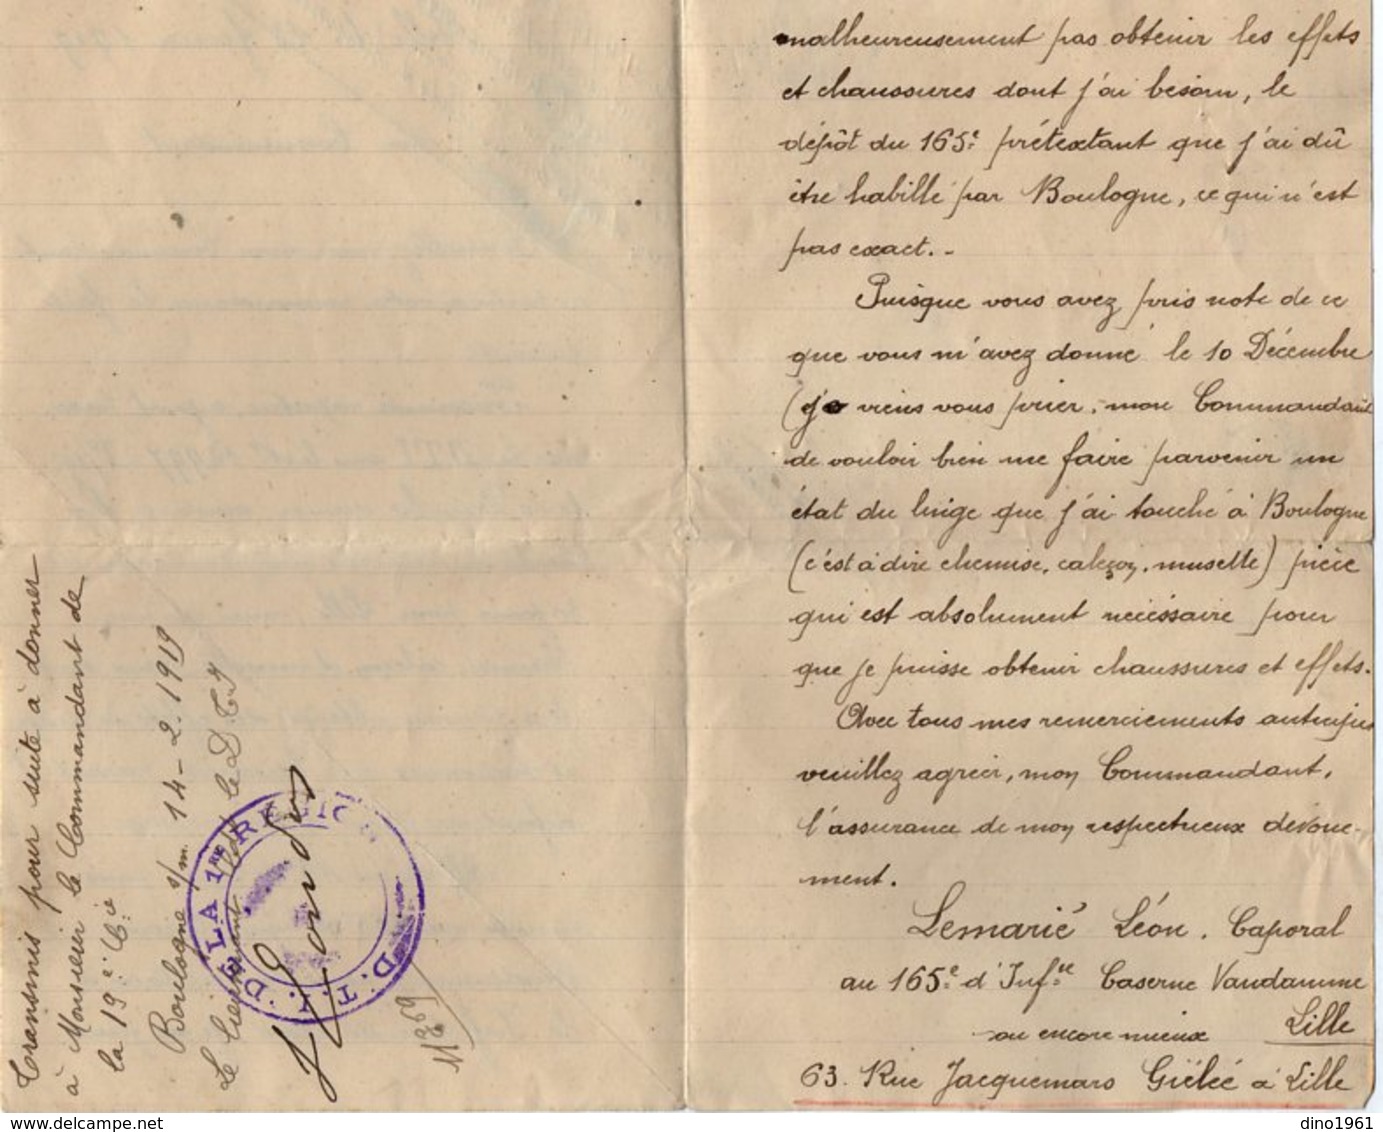 malheureusement pas obtenir les effets
et chaussures dont j'ai besoin, le
dépôt du 165e prétextant que j'ai dû
être habillé par Boulogne, ce qui n'est
pas exact. -
Puisque vous avez pris note de ce
que vous m'avez donné le 10 Décembre
(je viens vous prier, mon Commandant
de vouloir bien me faire parvenir un
état du linge que j'ai touché à Boulogne
(c'est à dire chemise, caleçon, musette) pièce
qui est absolument nécéssaire pour
que je puisse obtenir chaussures et effets.
Avec tous mes remerciements anticipés
veuillez agréer, mon Commandant,
l'assurance de mon respectueux dévoue-
ment.
Lemarié Léon, Caporal
au 165e d'Infrie Caserne Vandamme
ou encore mieux Lille
63. Rue Jacquemars Giélée à Lille
Transmis pour suite à donner
à Monsieur le Commandant de
la 19e Cie
Boulogne s/m. 14-2.1919
Le Lieutenant le D T I
DE LA 1RE REGION
D. T.
11869
dino1961